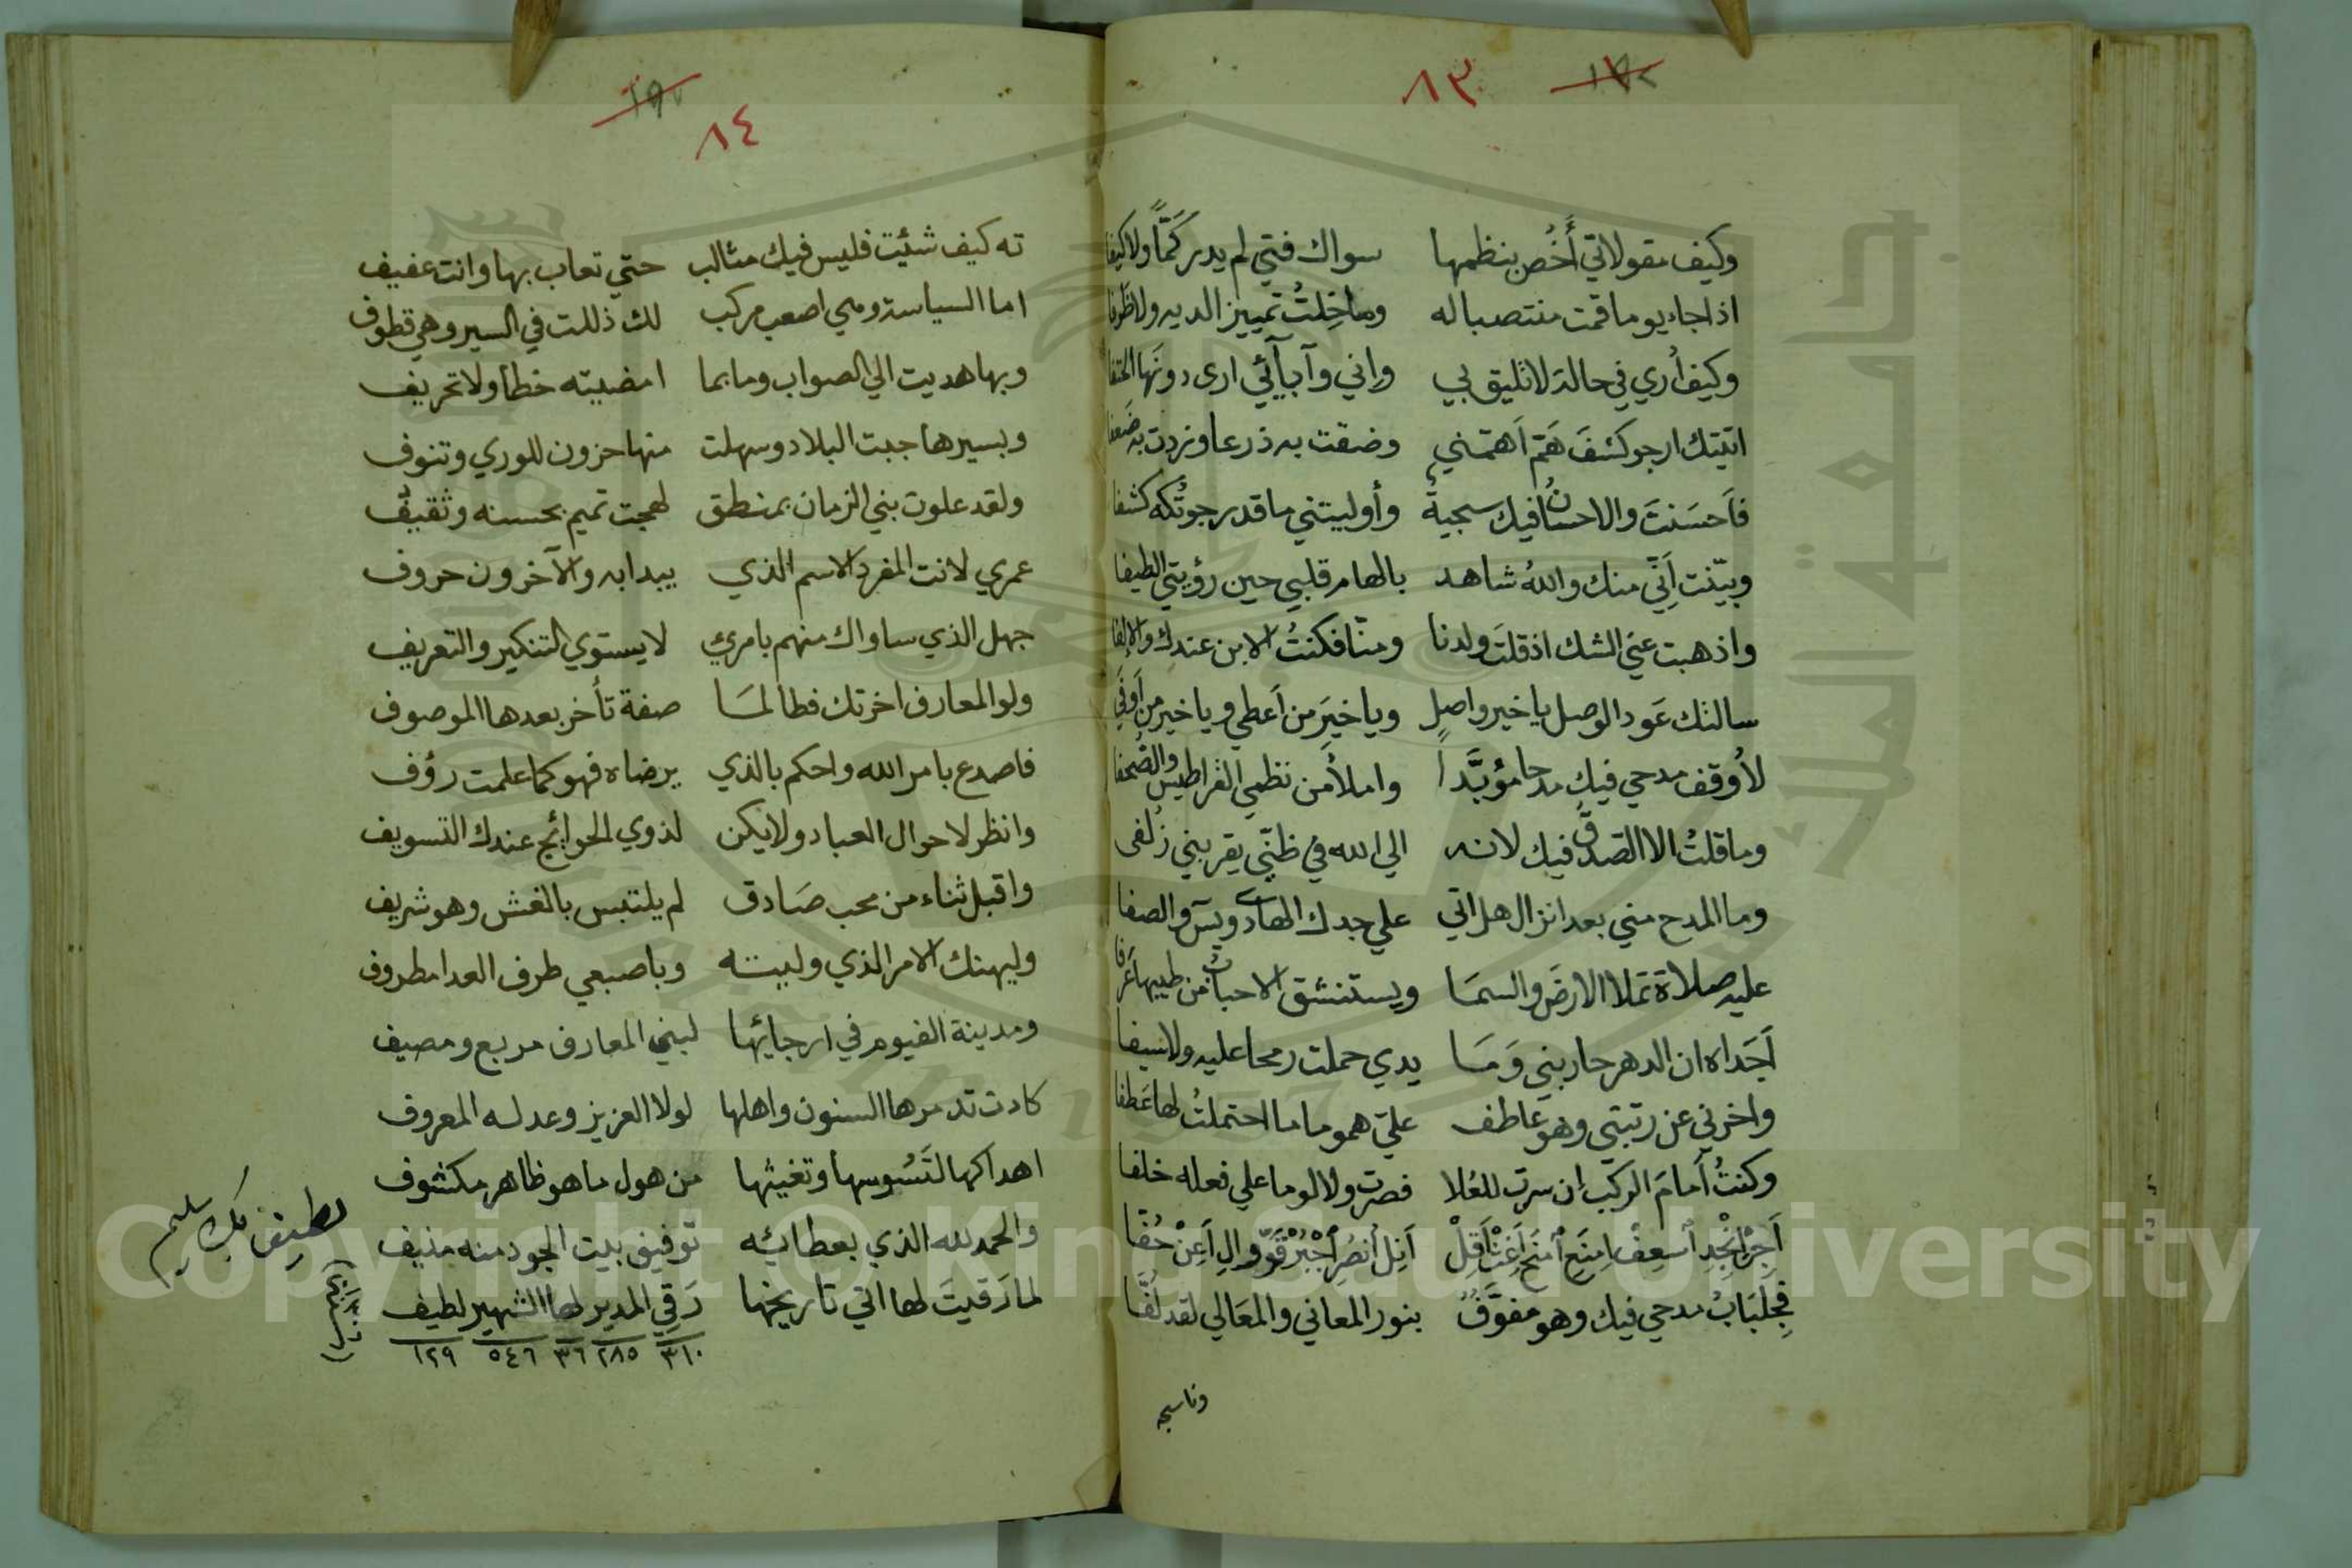 ٨٣
وكيف مقولاتي أَخُص بنظمها سواك فتي لم يدر كَمّاً ولا كيفا
اذا جاء يوما قمت منتصبا له وما خِلتُ تمييز الديه ولا ظرفا
وكيف أري في حالة لا تليق بي واني وآبآئي ارى دونها الحتفا
اتيتك ارجو كشفَ هَمّ اَهمّني وضقت به ذرعا وزدت به ضَعفا
فاَحسَنتَ والاحسانُ فيك سجيةً وأوليتني ما قد رجوتُ له كشفا
وبيّنت اَنّي منك واللهُ شاهد بالهام قلبي حين رؤيتي الطيفا
واذهبت عنّي الشك اذ قلتَ ولدنا ومنّا فكنتُ الابن عندك والإلفا
سالتك عَود الوصل يا خير واصلٍ ويا خيرَ من اَعطي ويا خير من اَوفَي
لأُوقف مدحي فيك مدحا مؤبّداً واملأ من نظمي القراطيس والصُّحفا
وما قلتُ الا الصدقَ فيك لانه الي الله في ظنّي يقربني زُلفى
وما المدح مني بعد انزال هل اتي علي جدك الهادي ويسٓ والصفا
عليه صلاة تملا الارضَ والسمَا ويستنشق الاحبابُ من طيبها عَرفا
اَجَداه ان الدهر حاربني وَمَا يدي حملت رمحا عليه ولا سيفا
واخرني عن رتبتي وهو عاطف عليّ هموما ما احتملتُ لها عَطفا
وكنتُ اَمامَ الركب اِن سرت للعُلا فصرت ولا لوما علي فعله خلفا
اَجِرْ اَنْجِدِ اُسعِفْ اِمنَعِ اُمنَحْ اَغِثْ اَقِلْ اَنِل اُنصُرِ اُجْبُرْ قَوِّ والِ اَعِنْ حُفّا
فجِلبَابُ مدحي فيك وهو مفوّفٌ بنور المعاني والمعَالي لقد لُفّا
وناسجه
٨٤
ته كيف شئيت فليس فيك مثالب حتي تعاب بها وانت عفيف
اما السياسة وهي اصعب مركب لك ذللت في السير وهي قطوف
وبها هديت الي الصواب وما بما امضيته خطأ ولا تحريف
وبسيرها جبت البلاد وسهلت منها حزون للوري وتنوف
ولقد علوت بني الزمان بمنطق لهجت تميم بحسنه وثقيف
عمري لانت المفرد الاسم الذي يبدا به والآخرون حروف
جهل الذي ساواك منهم بامرئ لا يستوي التنكير والتعريف
ولو المعارف اخرتك فطالمَا صفة تأخر بعدها الموصوف
فاصدع بامر الله واحكم بالذي يرضاه فهو كما علمت رؤف
وانظر لاحوال العباد ولا يكن لذوي الحوائج عندك التسويف
واقبل ثناء من محب صَادق لم يلتبس بالغش وهو شريف
وليهنك الامر الذي وليته وباصبعي طرف العدا مطروف
ومدينة الفيوم في ارجائها لبني المعارف مربع ومصيف
كادت تدمرها السنون واهلها لولا العزيز وعدله المعروف
اهداكها لتَسُوسها وتغيثها من هول ما هو ظاهر مكشوف
والحمد لله الذي بعطائه توفيق بيت الجود منه منيف
لما رَقيتَ لها اتي تاريخها رَقِي المدير لها الشهير لطيف
٣١٠ ٢٨٥ ٣٦ ٥٤٦ ١٢٩
لطيف بك سليم